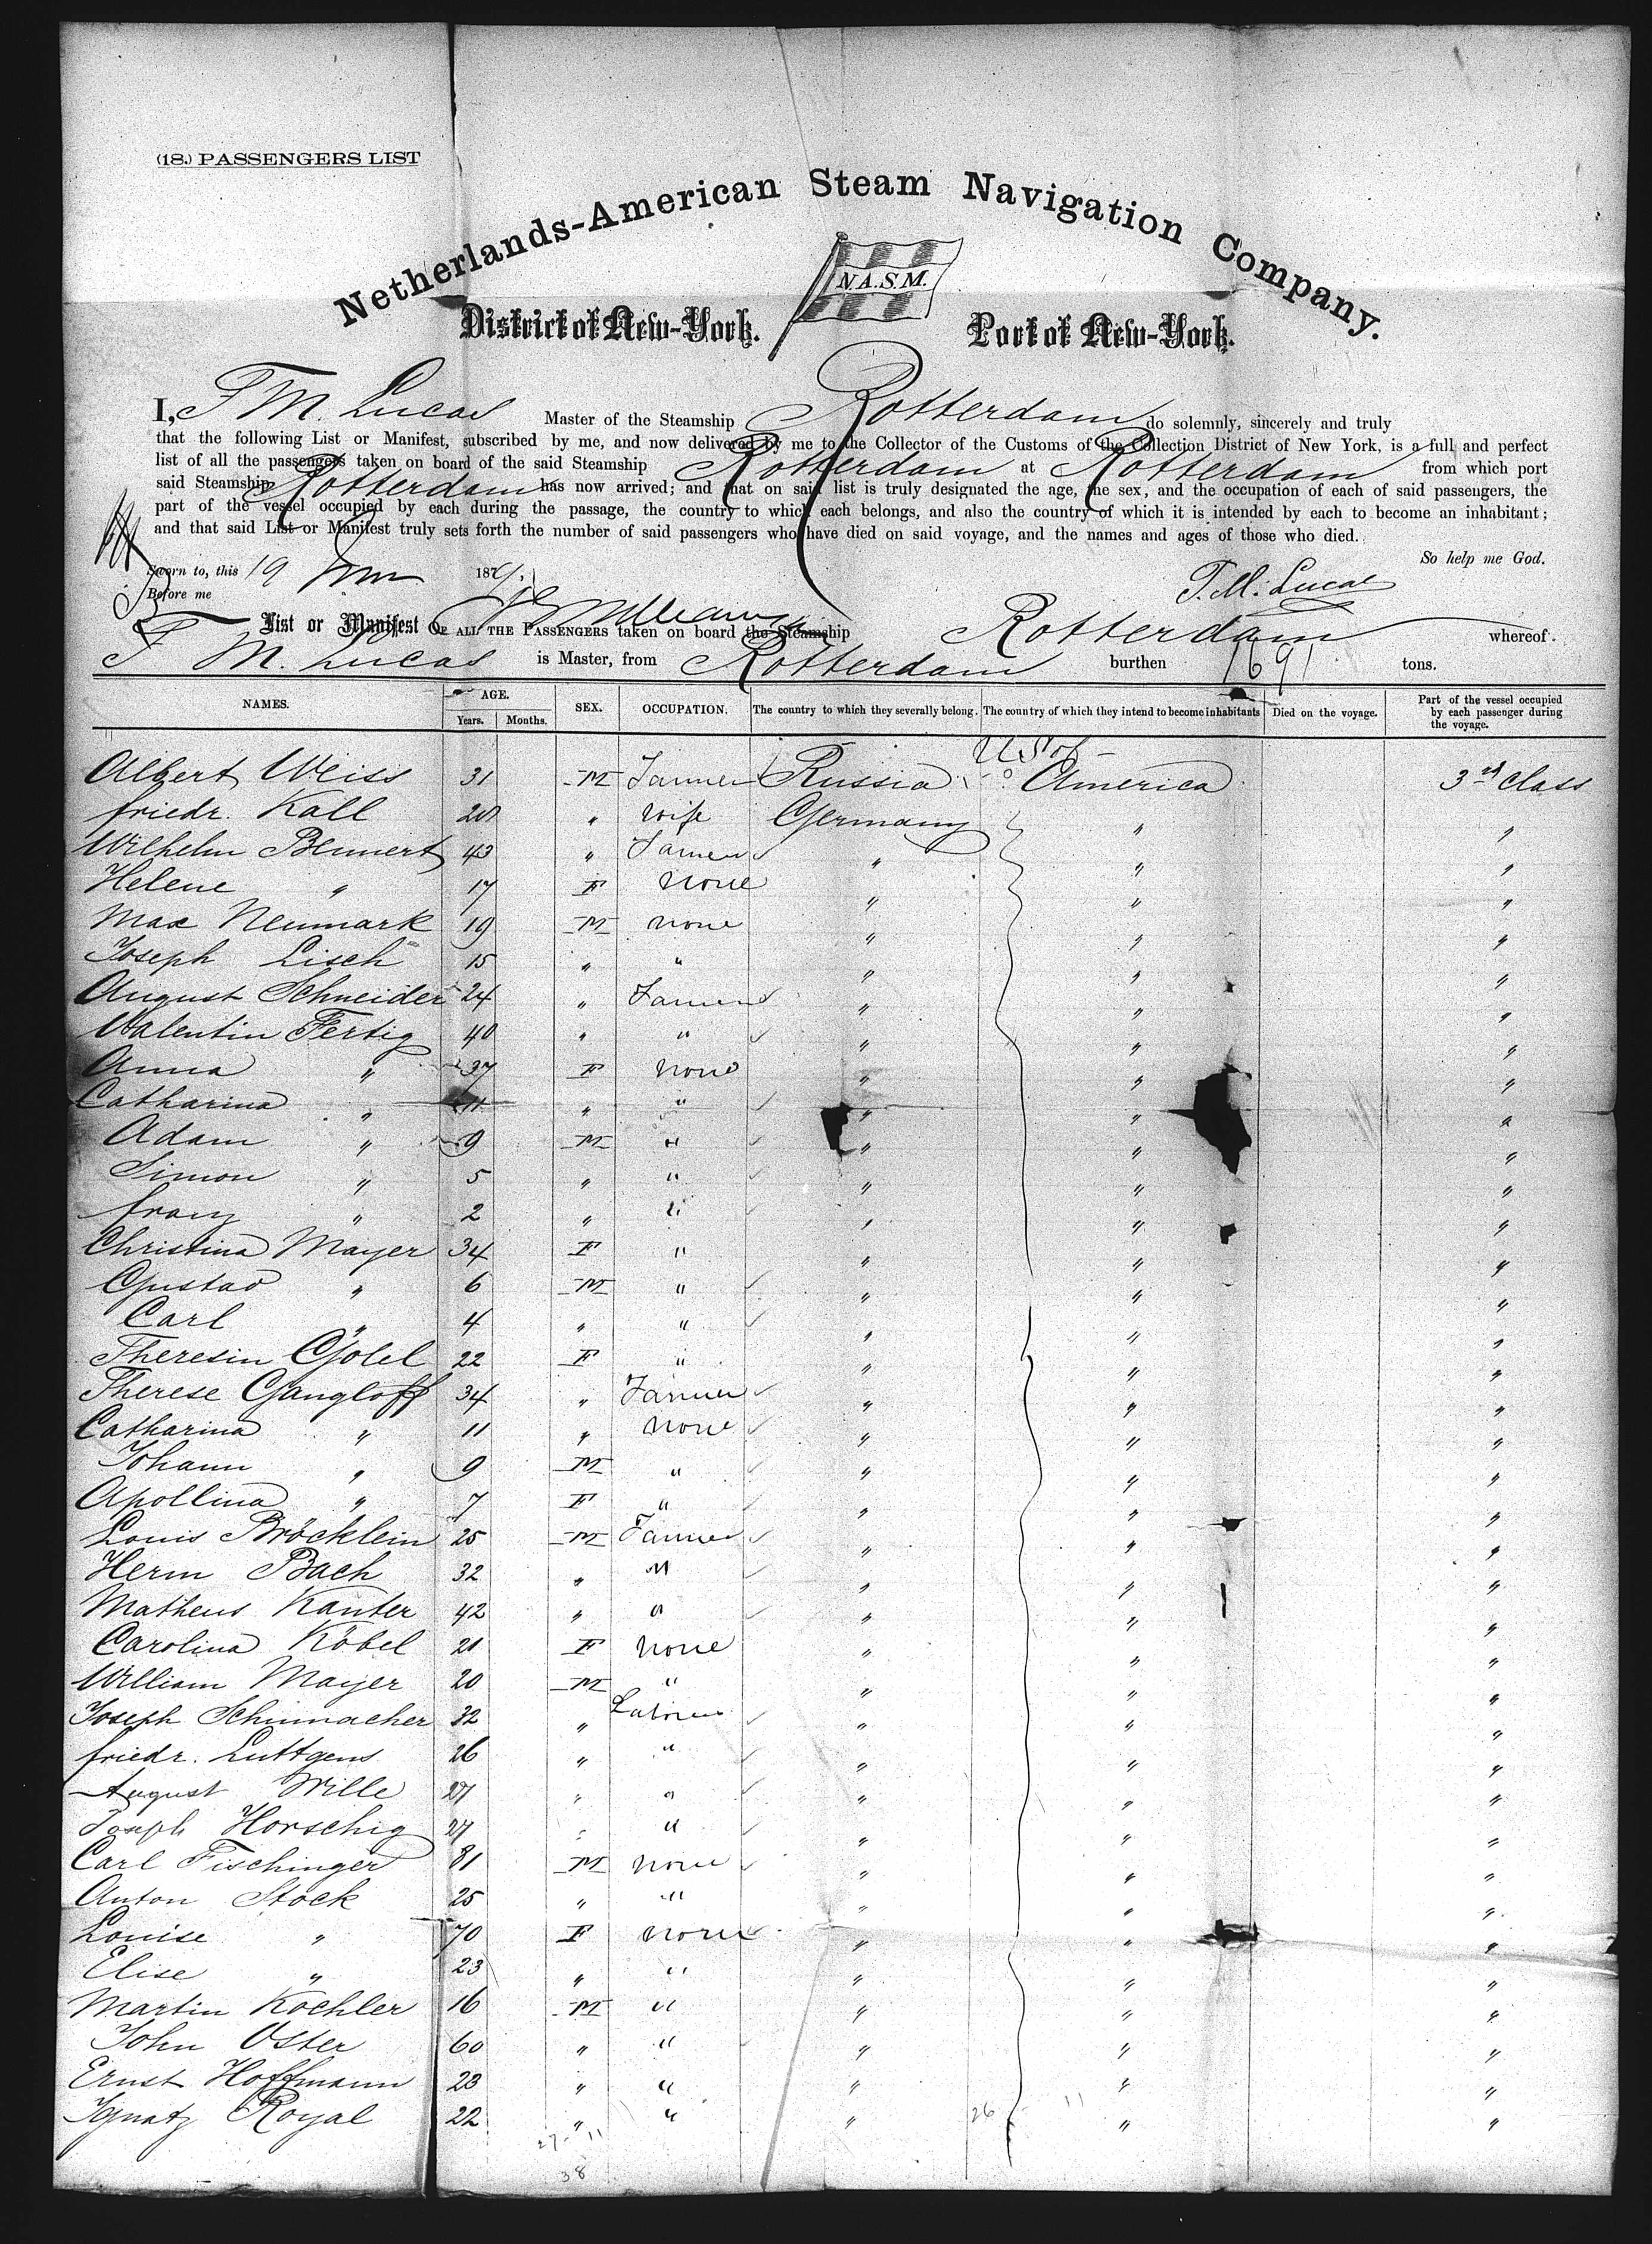 (18.) PASSENGERS LIST
Netherlands-American Steam Navigation Company.
N.A.S.M.
District of New-York. Port of New-York.
I, F M. Lucas Master of the Steamship Rotterdam do solemnly, sincerely and truly
that the following List or Manifest, subscribed by me, and now delivered by me to the Collector of the Customs of the Collection District of New York, is a full and perfect
list of all the passengers taken on board of the said Steamship Rotterdam at Rotterdam from which port
said Steamship Rotterdam has now arrived; and that on said list is truly designated the age, the sex, and the occupation of each of said passengers, the
part of the vessel occupied by each during the passage, the country to which each belongs, and also the country of which it is intended by each to become an inhabitant;
and that said List or Manifest truly sets forth the number of said passengers who have died on said voyage, and the names and ages of those who died.
So help me God.
Sworn to, this 19 187
Before me
F. M. Lucas
List or Manifest OF ALL THE PASSENGERS taken on board the Steamship Rotterdam whereof
F M. Lucas is Master, from Rotterdam burthen 1691 tons.
NAMES. AGE. Years. Months. SEX. OCCUPATION. The country to which they severally belong. The country of which they intend to become inhabitants Died on the voyage. Part of the vessel occupied by each passenger during the voyage.
U S of
Albert Weiss 31 M Farmer Russia America 3rd Class
friedr. Kall 20 " wife Germany " "
Wilhelm Bennert 43 " Farmer " " "
Helene " 17 F None " " "
Max Neumark 19 M none " " "
Joseph Lisch 15 " " " " "
August Schneider 24 " Farmer " " "
Valentin Fertig 40 " " " " "
Anna " 37 F none " " "
Catharina " 11 " " " " "
Adam " 9 M " " " "
Simon " 5 " " " " "
franz " 2 " " " " "
Christina Mayer 34 F " " " "
Gustav " 6 M " " " "
Carl " 4 " " " " "
Theresin Golel 22 F " " " "
Therese Gangloff 34 " Farmer " " "
Catharina " 11 " none " " "
Johann " 9 M " " " "
Apollina " 7 F " " " "
Louis Bröcklein 25 M Farmer " " "
Herm Bach 32 " " " " "
Matheus Kanter 42 " " " " "
Carolina Köbel 21 F none " " "
William Mayer 20 M " " " "
Joseph Schumacher 32 " Laborer " " "
friedr. Luttgens 26 " " " " "
August Wille 27 " " " " "
Joseph Horschig 27 " " " " "
Carl Fischinger 31 M none " " "
Anton Stock 25 " " " " "
Louise " 70 F none " " "
Elise " 23 " " " " "
Martin Kochler 16 M " " " "
John Oster 60 " " " " "
Ernst Hoffmann 23 " " " " "
Ignatz Royal 22 " " " " "
27 - 11 26 - 11
38